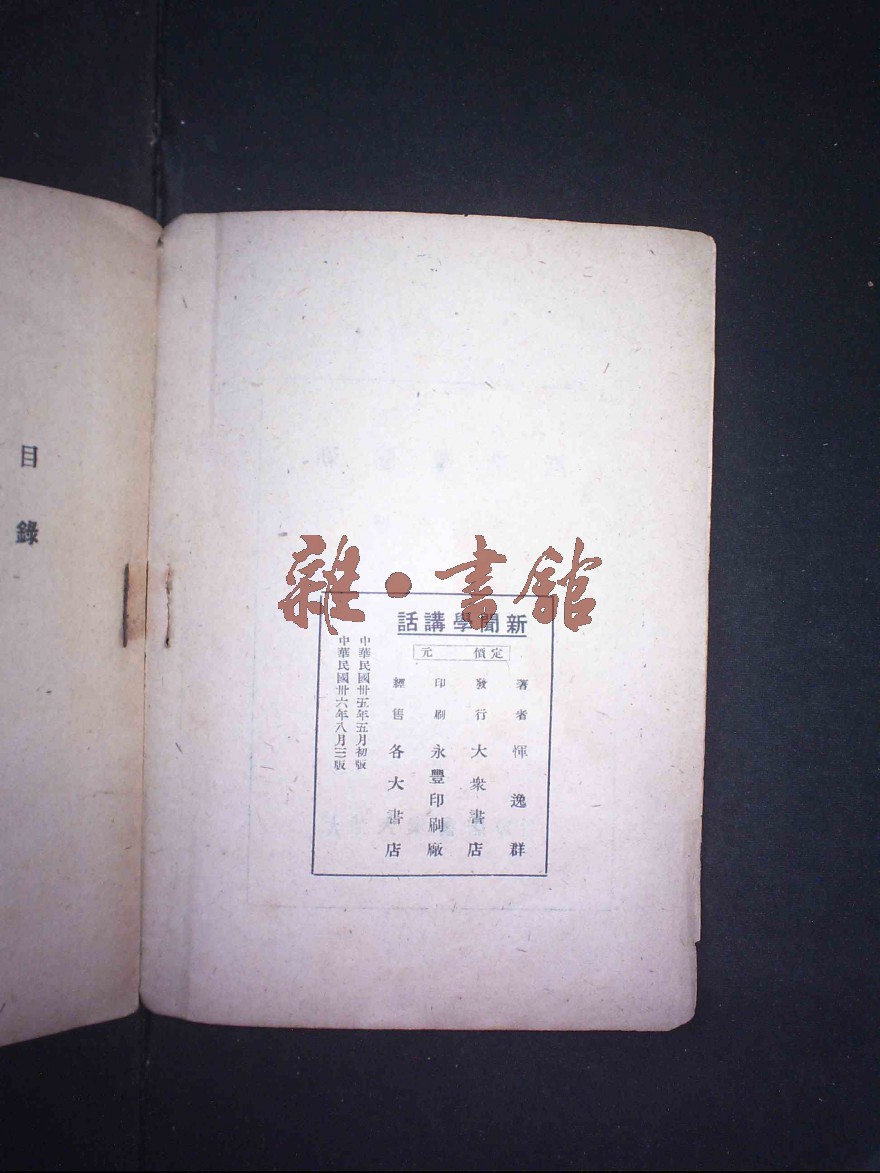 新聞學講話
定價 元
著者 惲逸群
發行 大衆書店
印刷 永豐印刷廠
經售 各大書店
中華民國卅五年五月初版
中華民國卅六年八月三版
目錄
雜·書館